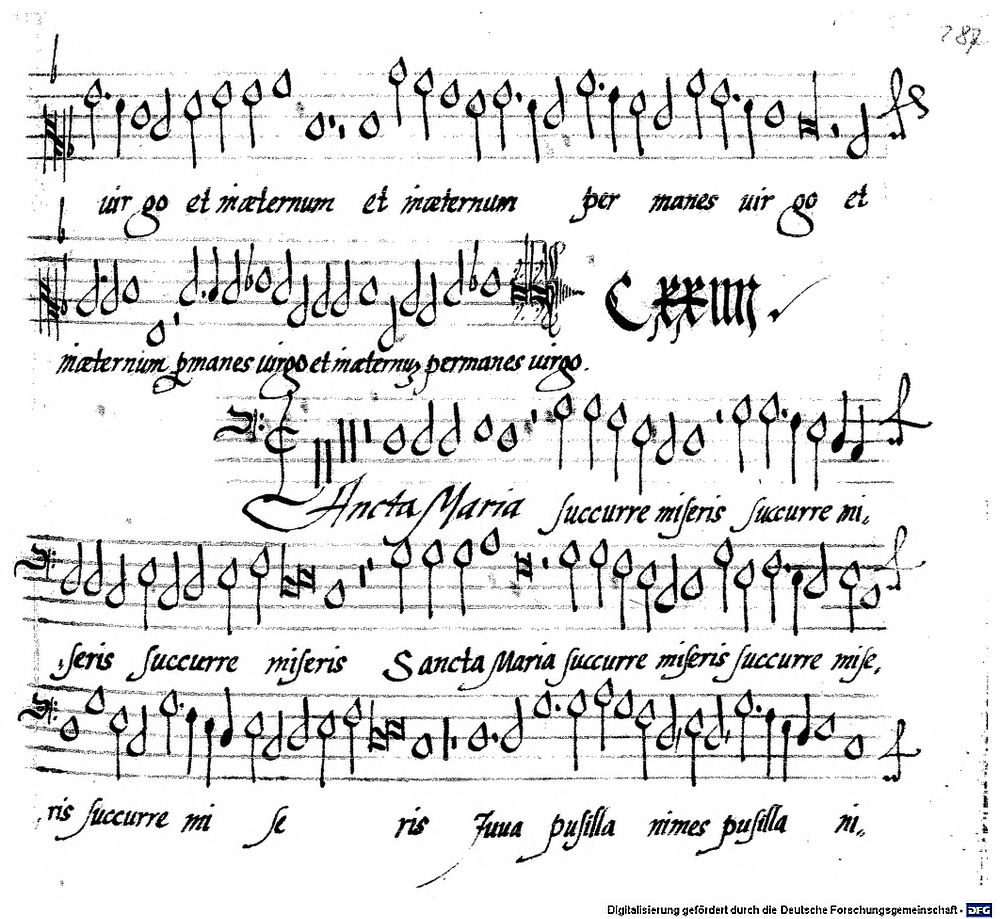 287
uir go et inæternum et inæternum per manes uir go et
inæternum pmanes uirgo et inæternũ permanes uirgo.
CXXIIII.
SAncta Maria succurre miseris succurre mi,
,seris succurre miseris Sancta Maria succurre miseris succurre mise,
ris succurre mi se ris Iuua pusilla nimes pusilla ni,
Digitalisierung gefördert durch die Deutsche Forschungsgemeinschaft - DFG